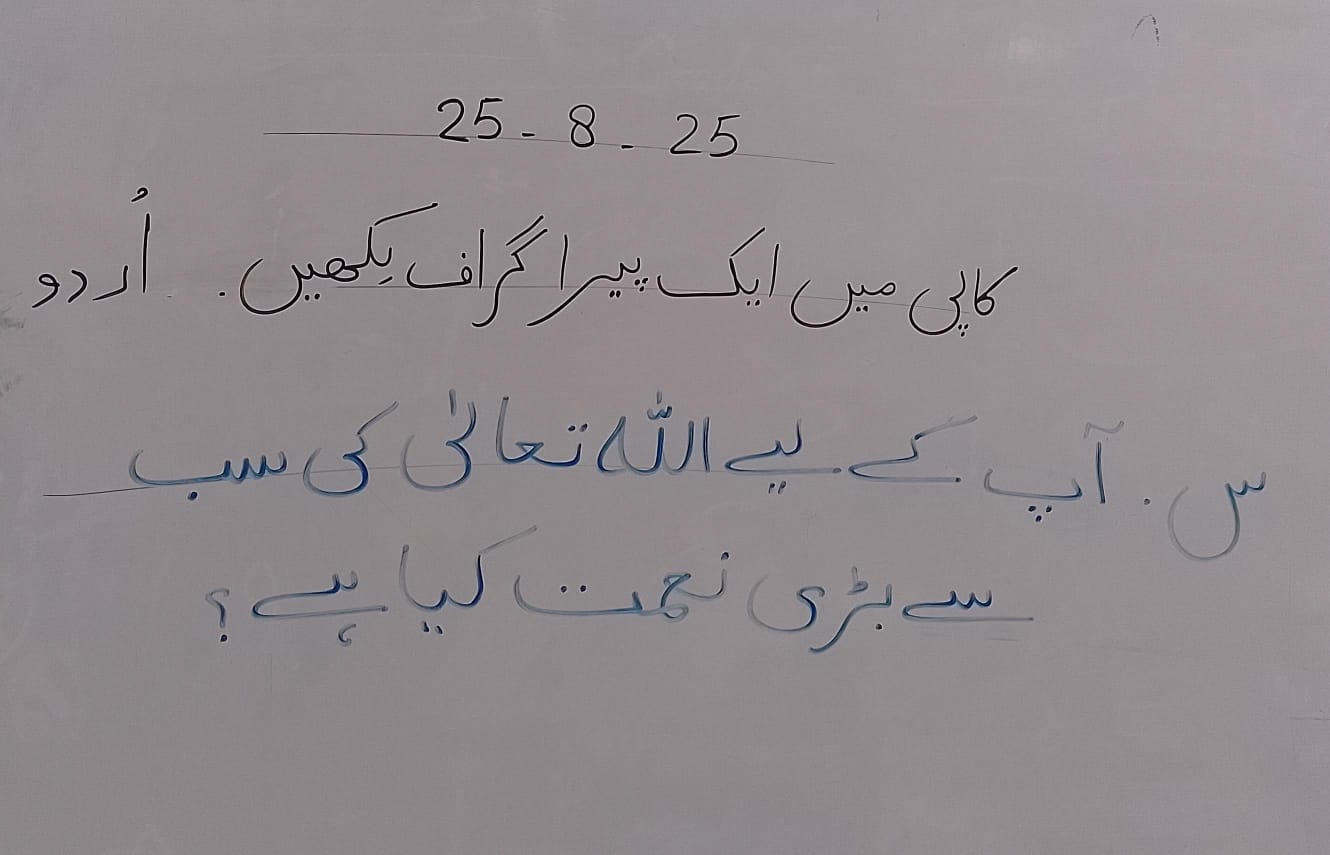 25 - 8 - 25
کاپی میں ایک پیرا گراف لِکھیں. اُردو
س. آپ کے لیے اللّٰہ تعالیٰ کی سب
سے بڑی نعمت کیا ہے؟